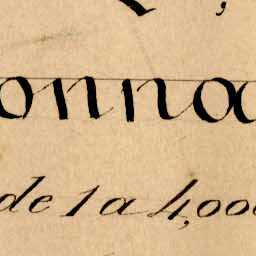 onna
de 1 a 4,000